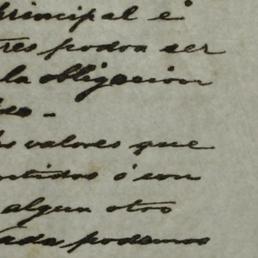 principal é
tres podra ser
la obligacion
valores que
ó con
algun otro
podemos